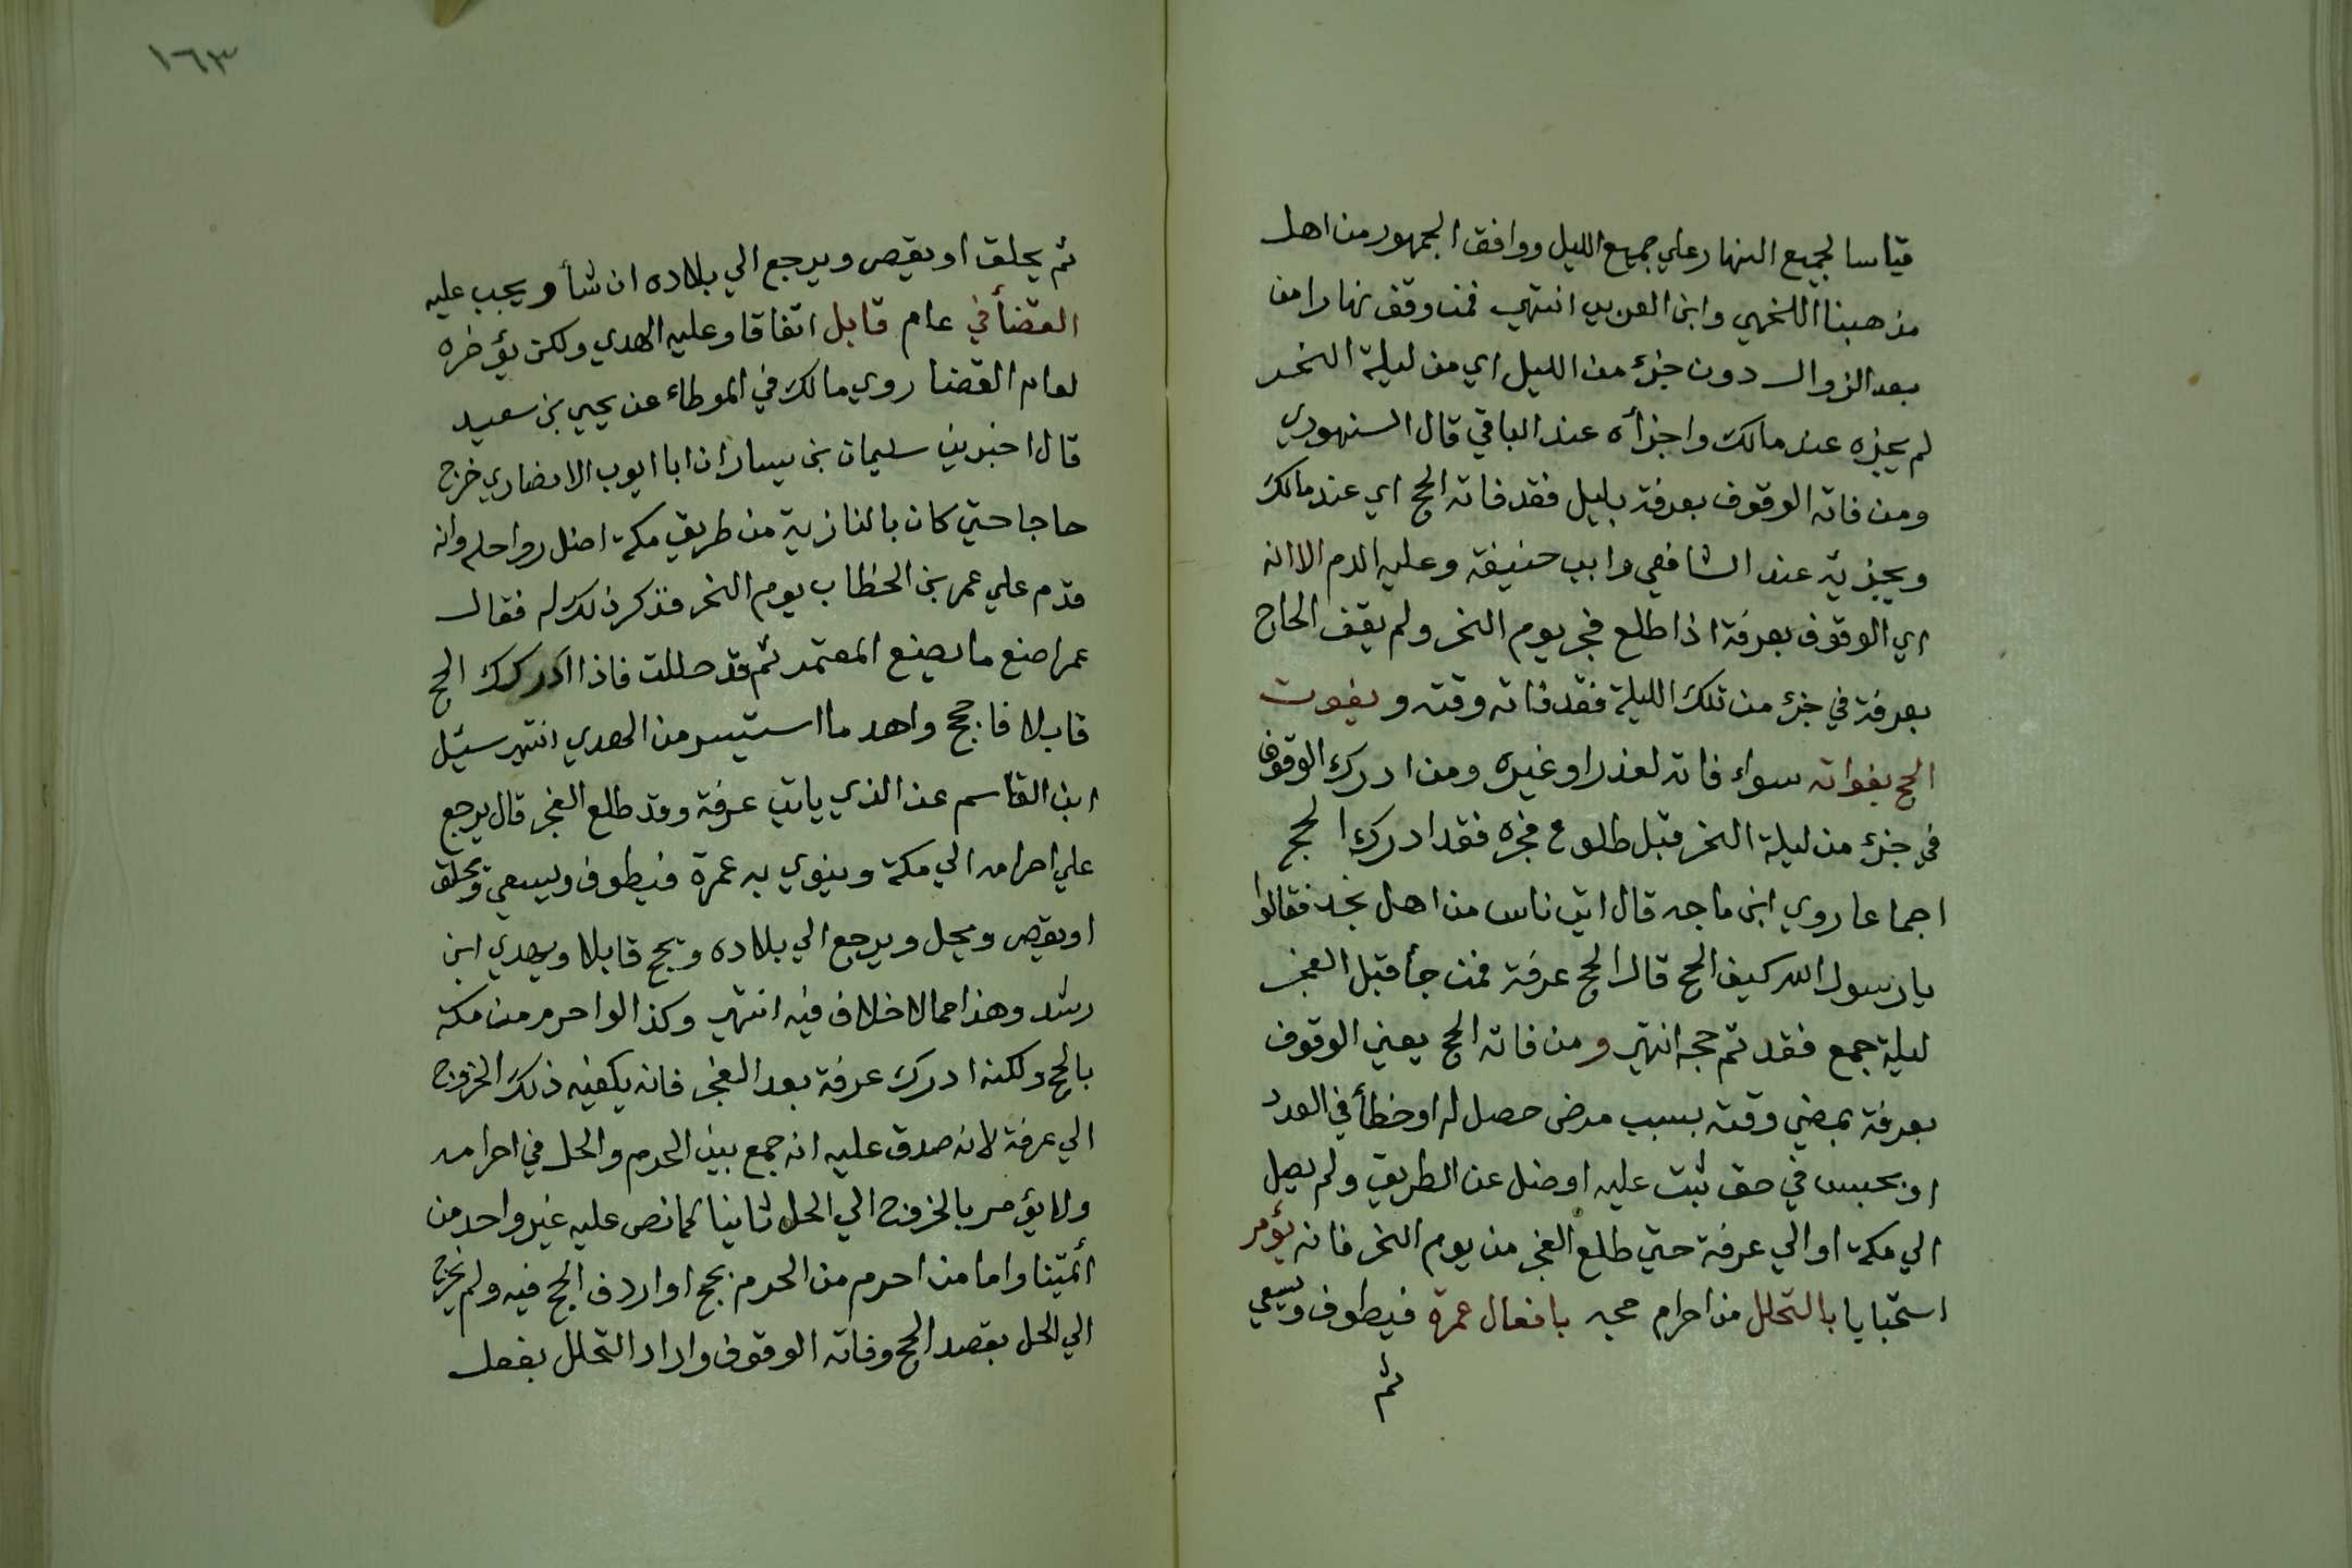 قياسا لجميع النهار علي جميع الليل ووافق الجمهور من اهل
مذهبنا اللخمي وابن العربي انتهي فمن وقف نهارا من
بعد الزوال دون جزء من الليل اي من ليلة النحر
لم يجزه عند مالك واجزأه عند الباقي قال السنهوري
ومن فاته الوقوف بعرفة بليل فقد فاته الحج اي عند مالك
ويجزيه عند الشافعي وابي حنيفة وعليه الدم الا انه
اي الوقوف بعرفة اذا طلع فجر يوم النحر ولم يقف الحاج
بعرفة في جزء من تلك الليلة فقد فاته وقته ويفوت
الحج بفواته سواء فاته لعذر او غيره ومن ادرك الوقوف
في جزء من ليلة النحر قبل طلوع فجره فقد ادرك الحج
اجماعا روي ابن ماجه قال اتي ناس من اهل نجد فقالوا
يا رسول الله كيف الحج قال الحج عرفة فمن جأ قبل الفجر
ليلة جمع فقد تم حجه انتهي ومن فاته الحج يعني الوقوف
بعرفة بمضي وقته بسبب مرض حصل له او خطأ في العدد
او بحبس في حق ثبت عليه او ضل عن الطريق ولم يصل
الي مكة او الي عرفة حتي طلع الفجر من يوم النحر فانه يؤمر
استحبابا بالتحلل من احرام حجه بافعال عمرة فيطوف ويسعي
ثم
١٦٣
ثم يحلق او يقصر ويرجع الي بلاده ان شأ ويجب عليه
القضأ في عام قابل اتفاقا وعليه الهدي ولكن يؤخره
لعام القضا روي مالك في الموطاء عن يحيي بن سعيد
قال اخبرني سليمان بن يسار ان ابا ايوب الانصاري خرج
حاجا حتي كان بالنازية من طريق مكة اضل رواحله وانه
قدم علي عمر بن الخطاب يوم النحر فذكر ذلك له فقال
عمر اصنع ما يصنع المعتمر ثم قد حللت فاذا ادركك الحج
قابلا فاحجج واهد ما استيسر من الهدي انتهي سئيل
ابن القاسم عن الذي ياتي عرفة وقد طلع الفجر قال يرجع
علي احرامه الي مكة وينوي به عمرة فيطوف ويسعي ويحلق
او يقصر ويحل ويرجع الي بلاده ويحج قابلا ويهدي ابن
رشد وهذا مما لا خلاف فيه انتهي وكذا لو احرم من مكة
بالحج ولكنه ادرك عرفة بعد الفجر فانه يكفيه ذلك الخروج
الي عرفة لانه صدق عليه انه جمع بين الحرم والحل في احرامه
ولا يؤمر بالخروج الي الحل ثانيا كما نص عليه غير واحد من
ائمتنا واما من احرم من الحرم بحج او اردف الحج فيه ولم يخرج
الي الحل بقصد الحج وفاته الوقوف واراد التحلل بفعل